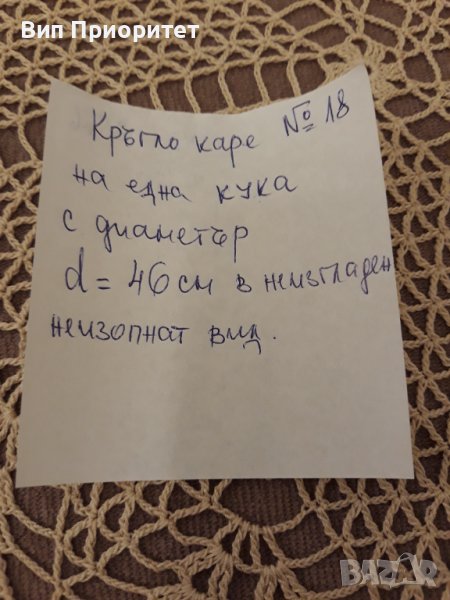 Вип Приоритет
Кръгло каре № 18
на една кука
с диаметър
d = 46 см в неизгладен
неизопнат вид.
BAZAR